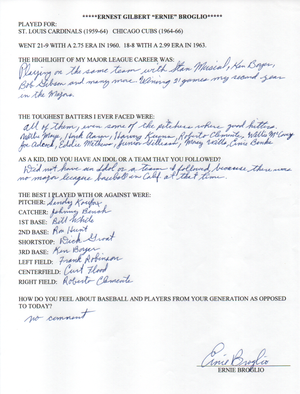 *****ERNEST GILBERT "ERNIE" BROGLIO*****
PLAYED FOR:
ST. LOUIS CARDINALS (1959-64) CHICAGO CUBS (1964-66)
WENT 21-9 WITH A 2.75 ERA IN 1960. 18-8 WITH A 2.99 ERA IN 1963.
THE HIGHLIGHT OF MY MAJOR LEAGUE CAREER WAS:
Playing on the same team with Stan Musial, Ken Boyer,
Bob Gibson and many more. Winning 21 games my second year
in the Majors.
THE TOUGHEST BATTERS I EVER FACED WERE:
all of them, even some of the pitchers where good hitters.
Willie Mays, Hank Aaron, Harvey Kuenn, Roberto Clemente, Willie McCovey
Joe Adcock, Eddie Mathews, Maury Wills, Ernie Banks
AS A KID, DID YOU HAVE AN IDOL OR A TEAM THAT YOU FOLLOWED?
Did not have an idol or a team I followed because there was
no major league baseball in Calif at that time.
THE BEST I PLAYED WITH OR AGAINST WERE:
PITCHER: Sandy Koufax
CATCHER: Johnny Bench
1ST BASE: Bill White
2ND BASE: Ron Hunt
SHORTSTOP: Dick Groat
3RD BASE: Ken Boyer
LEFT FIELD: Frank Robinson
CENTERFIELD: Curt Flood
RIGHT FIELD: Roberto Clemente
HOW DO YOU FEEL ABOUT BASEBALL AND PLAYERS FROM YOUR GENERATION AS OPPOSED
TO TODAY?
no comment
Ernie Broglio
ERNIE BROGLIO